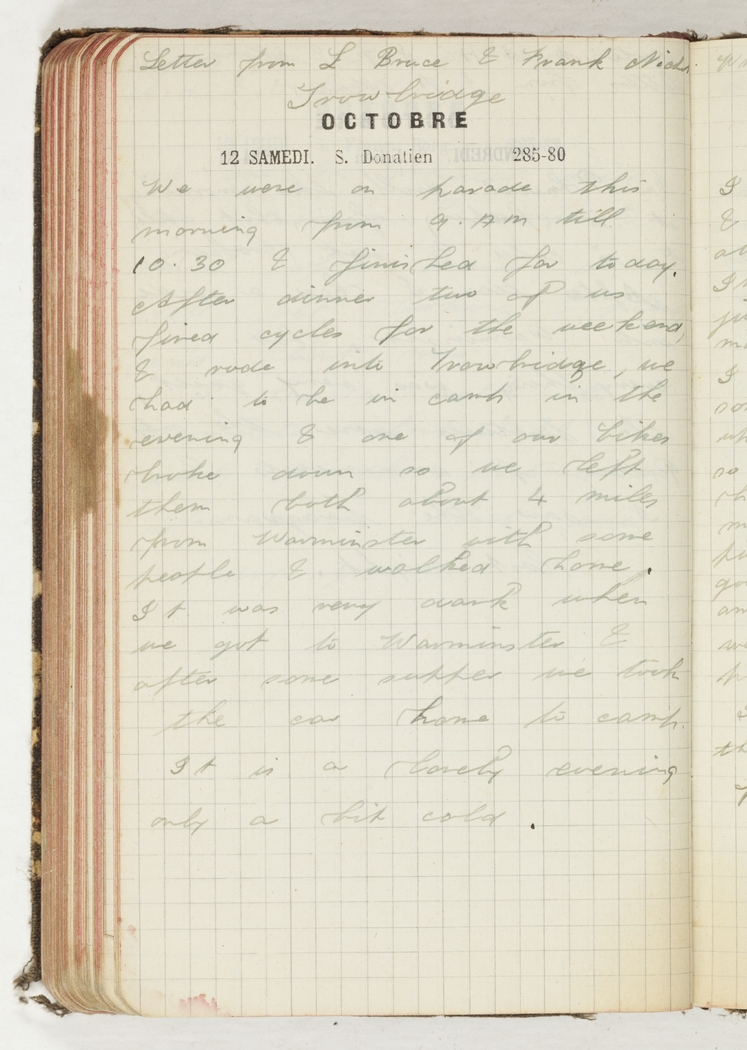 Letter from L Bruce & Frank
Trowbridge
OCTOBRE
12 SAMEDI. S. Donatien 285-80
We were on parade this
morning from 9. AM till
10.30 & finished for today.
After dinner two of us
fired cycles for the weekend,
& rode into Trowbridge, we
had to be in camb in the
evening & one of our bikes
broke down so we left
them both about 4 miles
from Warminster with some
people & walked home.
It was very dark when
we got to Warminster &
after some supper we took
the car home to camp.
It is a lovely evening
only a bit cold.